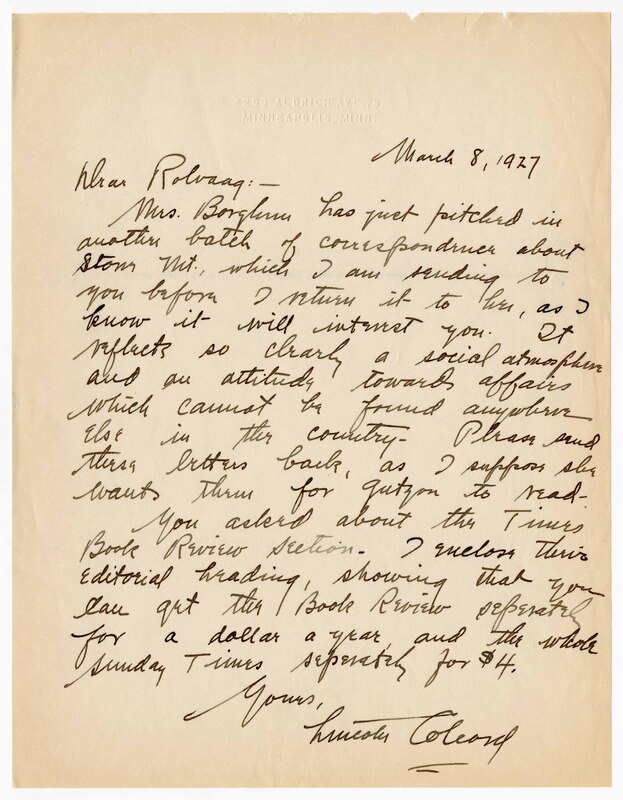 2203 ALDRICH AVE., S.
MINNEAPOLIS, MINN.
March 8, 1927
Dear Rolvaag:—
Mrs. Borglum has just pitched in
another batch of correspondence about
Stone Mt., which I am sending to
you before I return it to her, as I
know it will interest you. It
reflects so clearly a social atmosphere
and an attitude towards affairs
which cannot be found anywhere
else in the country. Please send
these letters back, as I suppose she
wants them for Gutzon to read.
You asked about the Times
Book Review section. I enclose their
editorial heading, showing that you
can get the Book Review seperately
for a dollar a year and the whole
Sunday Times seperately for $4.
Yours,
Lincoln Colcord